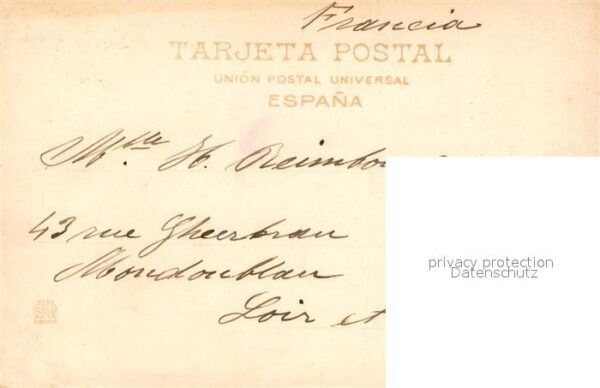 Francia
TARJETA POSTAL
UNIÓN POSTAL UNIVERSAL
ESPAÑA
Mlle H.
43 rue Gheerbrau
Mondoublau
Loir et
privacy protection
Datenschutz